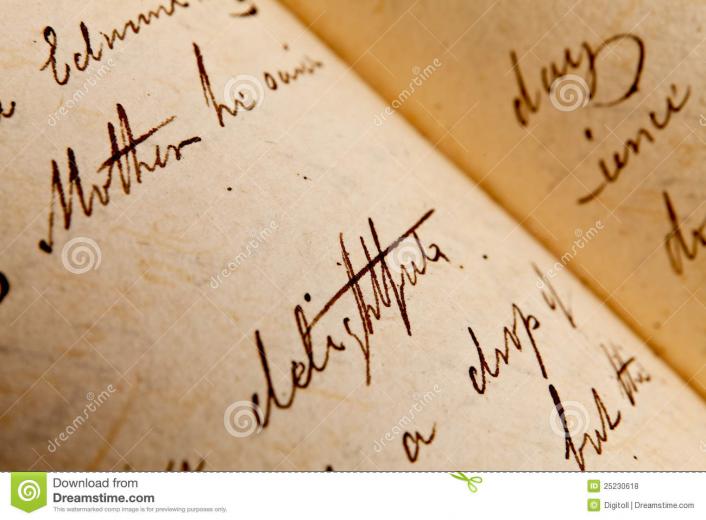 Edmun
Mother his
delightful.
a drop of
but the
day
ience
do
Download from
Dreamstime.com
This watermarked comp image is for previewing purposes only.
ID 25230618
© Digitoll | Dreamstime.com